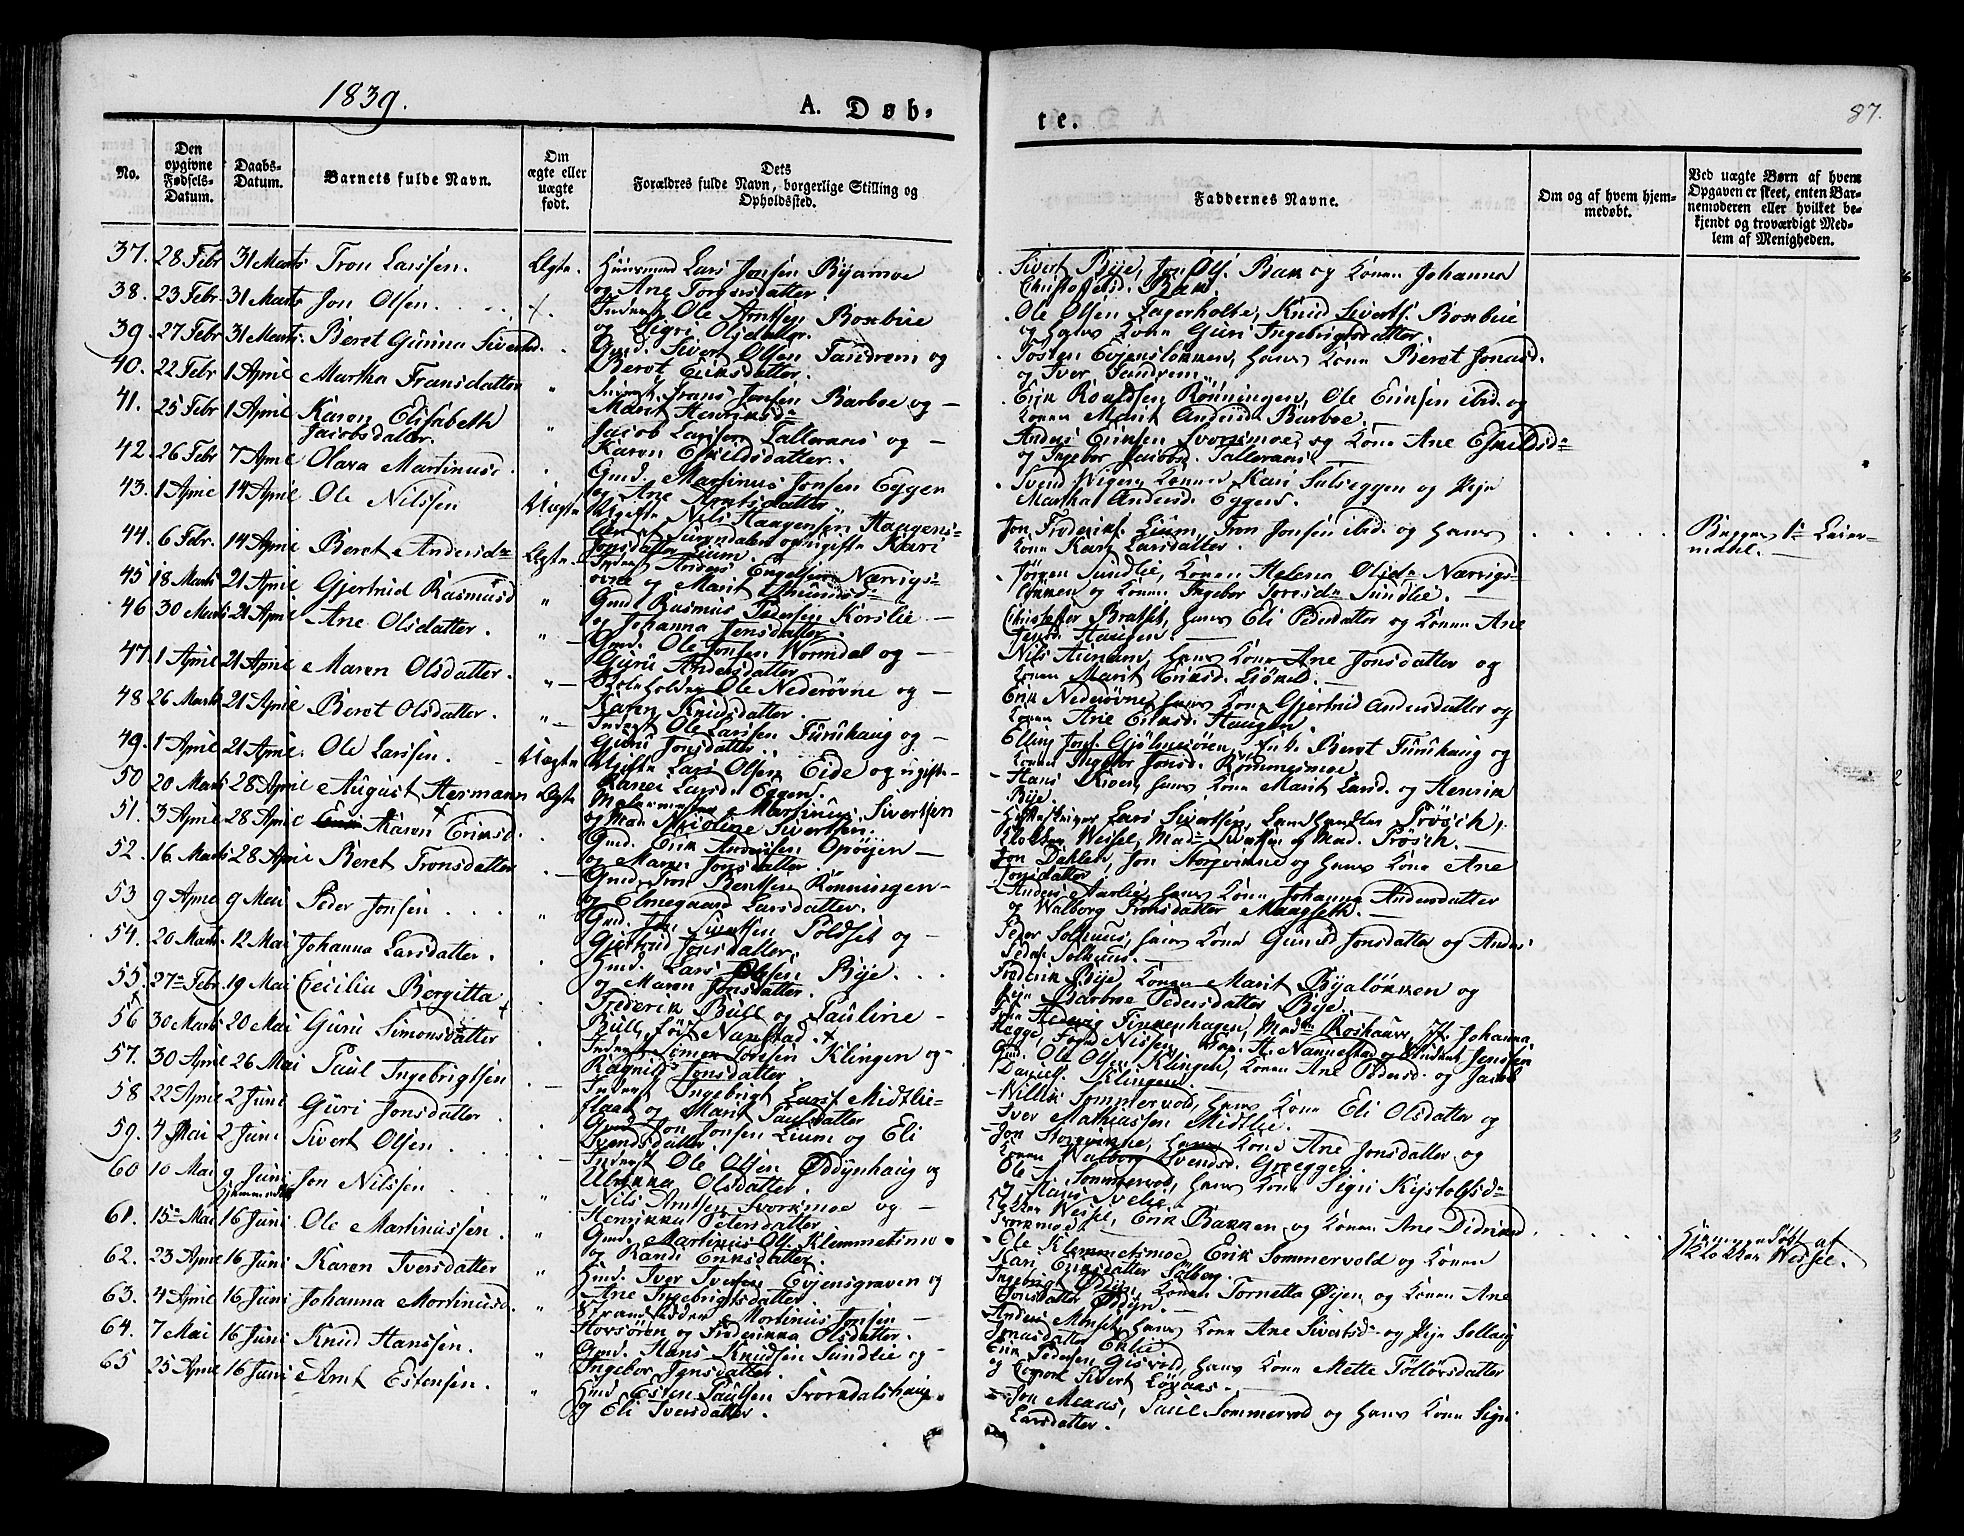 1839.
A. Døb-
te.
87.
No.
Den
opgivne
Fødsels-
Datum.
Daabs-
Datum.
Barnets fulde Navn.
Om
ægte eller
uægte
født.
Dets
Forældres fulde Navn, borgerlige Stilling og
Opholdssted.
Faddernes Navne.
Om og af hvem hjem-
medøbt.
Ved uægte Børn af hvem
Opgaven er skeet, enten Bar-
nemoderen eller hvilket be-
kjendt og troværdigt Med-
lem af Menigheden.
37. 28 Febr 31 Marts Tron Larssen. Ægte. Huusmand Lars Jonsen Byamoe
og Ane Tomesdatter.
Sivert Bye, Jon Ols. Bak og Konen Johanna
Christophersd. Bak.
38. 23 Febr 31 Marts Jon Olsen.
Inderst Ole Arntsen Boxbue
og Sigri Olsdatter.
Ole Olsen Fagerholte, Knud Siverts. Boxbue
og hans Kone Guri Ingebrigtsdatter.
39. 27 Febr 31 Marts Beret Gunna Sivertsd.
Gmd. Sivert Olsen Sandrem og
Beret Eriksdatter.
Josten Evjensløkken, hans Kone Beret Jonasd.
og Iver Sandrem.
40. 22 Febr 1 April Martha Fransdatter
Inderst Frans Jonsen Barboe og
Marit Henriksd
Erik Roaldsen Rønningen, Ole Eriksen ibid. og
Konen Marit Andersd. Barboe.
41. 25 Febr 1 April Karen Elisabeth
Jacobsdatter.
Jacob Larssen Talleraas og
Karen Eskildsdatter.
Anders Eriksen Svorkmoe, og Kone Ane Eskildsd
og Ingebor Jacobsd. Talleraas.
42. 26 Febr 7 April Olava Martinusd.
Gmd. Martinus Jonsen Eggen
og Ane Arntsdatter.
Svend Wigen, Konen Kari Solveggen og Pige
Martha Andersd. Eggen.
43. 1 April 14 April Ole Nilssen Uægte Ugifte Nils Haagensen Haagens-
Jonsdatter Lium.
Jon Frederiks. Lium, Tron Jonsen ibid. og hans
Kone Kari Larsdatter.
Begges 1ste Leier-
maal.
44. 6 Febr. 14 April Beret Andersd Ægte
Inderst Anders Engelsen Nærvigs-
øvne og Marit Amundsd
Jørgen Sundlie, Konen Helena Olsd Nærvigs-
løkken og Konen Ingebor Toresd Sundlie.
45 18 Marts 21 April Gjertrud Rasmusd
Gmd. Rasmus Pedersen Korslie
og Johanna Jensdatter.
Christopher Bratset, hans Eli Pedersdatter og Konen Ane
Jensd. Haugen.
46 30 Marts 21 April Ane Olsdatter.
Gmd. Ole Jonsen Wormdal og
Guru Andersdatter
Nils Aunum, hans Kone Ane Jonsdatter og
Konen Marit Eriksd.
47. 1 April 21 April Maren Olsdatter.
Ole Nederøvne og
Karen Knudsdatter.
Erik Nederøvne, hans Kone Gjertrud Andersdatter og
Konen Ane Eriksd. Haugen.
48 26 Marts 21 April Beret Olsdatter.
Inderst Ole Larssen Furuhaug og
Guru Jonsdatter.
Elling Jons. Gjølmesøren, Enke Beret Furuhaug og
Konen Ingebor Jonsd. Rømmesmoe.
49. 1 April 21 April. Ole Larssen. Uægte Ugifte Lars Olsen Eide og ugifte
Larsd. Eggen.
Hans hans Kone Marit Larsd. og Henrik
Bye.
50 20 Marts 28 April August Hermann Ægte
Martinus Sivertsen
og Mad. Nicoline Sivertsen.
Lars Sivertsen, Landhandler Trøsch,
Klokker Wessel, Mad Sivertsen og Mad. Trøsch.
51. 3 April 28 April Karen Eriksd.
Gmd. Erik Andersen Opøyen
og Maren Jonsdatter.
Jon Dahlen, Jon Storvinne og hans Kone Ane
Jonsdatter.
52. 16 Marts 28 April Beret Tronsdatter
Gmd. Tron Bentsen Rønningen
og Elmegaard Larsdatter.
Anders Aarlie, hans Kone Johanna Andersdatter
og Walborg Tronsdatter
53 9 April 9 Mai Peder Jonsen
Gmd. Jon Sivertsen Poldset og
Gjertrud Jonsdatter.
Peder Solhuus, hans Kone Guruд Jonsdatter og Anders
Peders. Solhuus.
54. 20 Marts. 12 Mai Johanna Larsdatter.
Hmd. Lars Olsen Bye.
og Maren Jonsdatter.
Frederik Bye, Konen Marit Byaløkken og
Pige Barboe Pedersdatter Bye.
55 27 Febr. 19 Mai Cecilia Bergitta
Frederik Bull og Pauline
Bull født Nanestad
Hedevig Finkenhagen, Madm Roshauw, Jf. Johanna
Hegge, Fogd Nissen, Cap. H. Nannestad og Student Jenssen
56 30 Marts 20 Mai Guru Simonsdatter
Inderst Simon Jonsen Klingen og
Ragnild Jonsdatter
Gmd. Ole Olsen Klingen, Konen Ane Pedersd. og Jacob
Daniels. Klingen.
57. 30 April 26 Mai Paul Ingebrigtsen
Inderst Ingebrigt Lars. Midtlie-
og Marit Paulsdatter
Willik Sommervold, hans Kone Eli Olsdatter og
Iver Mathiassen Midtlie.
58 22 April 2 Juni Guri Jonsdatter
Gmd Jon Jonsen Lium og Eli
Svendsdatter
Jon Storvinne, hans Kone Ane Jonsdatter og
Konen Walborg Svendsd.
59. 4 Mai 2 Juni Sivert Olsen
Inderst Ole Olsen Øddynhaug og
Ulrikka Olsdatter
Ole Sommervod, hans Kone Sigri Kristofsd
og Hans
60 10 Mai 9 Juni Jon Nilssen
hjemmedøbt
Nils Arntsen Svorkmoe og
Henrikka Pedersdatter
Klokker Wessel, Erik Bakken og Konen Ane Didriksd
Svorkmoe.
Hjemmedøbt af
Klokker Wessel.
61. 15 Mai 16 Juni Ole Martinussen.
Gmd. Martinus Ols. Klemmetsmo
og Randi Eriksdatter.
Ole Klemmetsmoe, Erik Sommervold og Konen
Kari Eriksdatter Solberg.
62. 23 April 16 Juni Karen Iversdatter
Hmd. Iver Iversen Evjensgraven og
Ane Ingebrigtsdatter
Ingebrigt Konen Tornetta Øyen og Konen Ane
Jonsdatter Øddyn.
63. 4 April 16 Juni Johanna Mortinusd.
Strandsidder Mortinus Jonsen
Hovsøren og Frederikka Olsdatter.
Anders Monset, hans Kone Ane Sivertsd og Pige Sollaug
Jonasdatter Eklie
64. 7 Mai 16 Juni Knud Hanssen.
Gmd. Hans Knudsen Sundlie og
Ingebor Jonsdatter.
Erik Pedersen Gisvold, hans Kone Mette Tollorsdatter
og Sivert Løxaas.
65 25 April 16 Juni Arnt Estensen.
Hmd Esten Paulsen Svorkdalshaug
og Eli Iversdatter.
Jon Moaas, Paul Sommervod og hans Kone Sigri
Larsdatter.